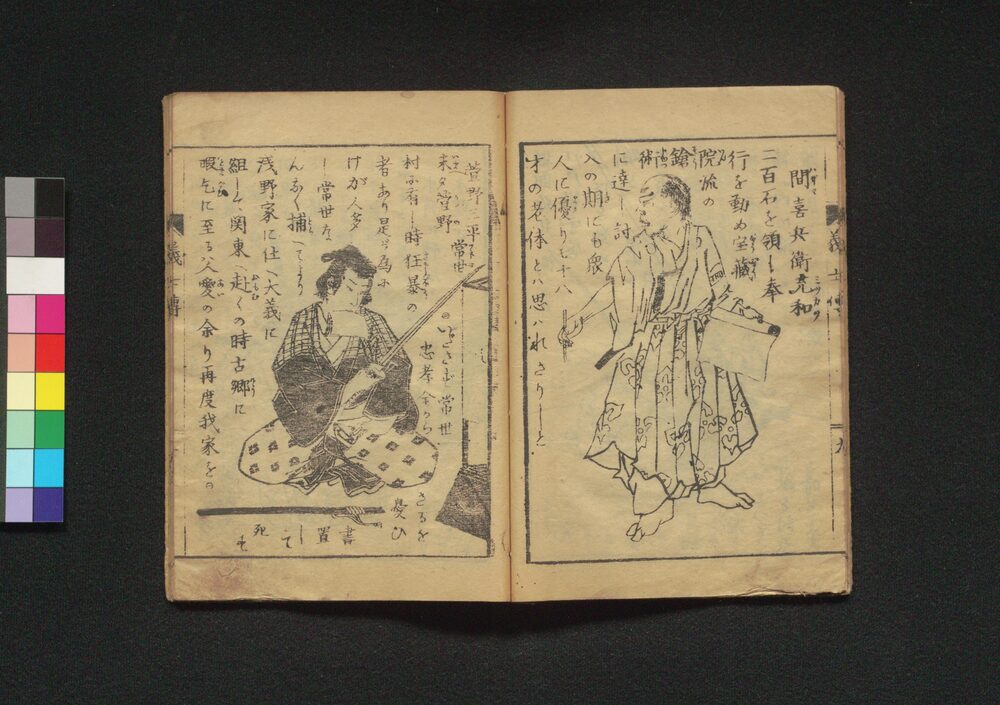 間喜兵衛光和
二百石を領し奉
行を勤め宝蔵
院流の
鎗術
に達し討
入の期にも衆
人に優り六十八
才の老体とハ思ハれさりしと
義士傳
九
菅野三平
常世
来タ菅野
村に有し時狂暴の
者あり是が為に
けが人多
し常世な
んなく捕へてより
浅野家に仕へ大義に
組して関東へ赴くの時古郷に
暇乞に至る父愛の余り再度我家をの
いださず常世
忠孝全から
ざるを
憂ひ
書
置
して
死す
義士傳